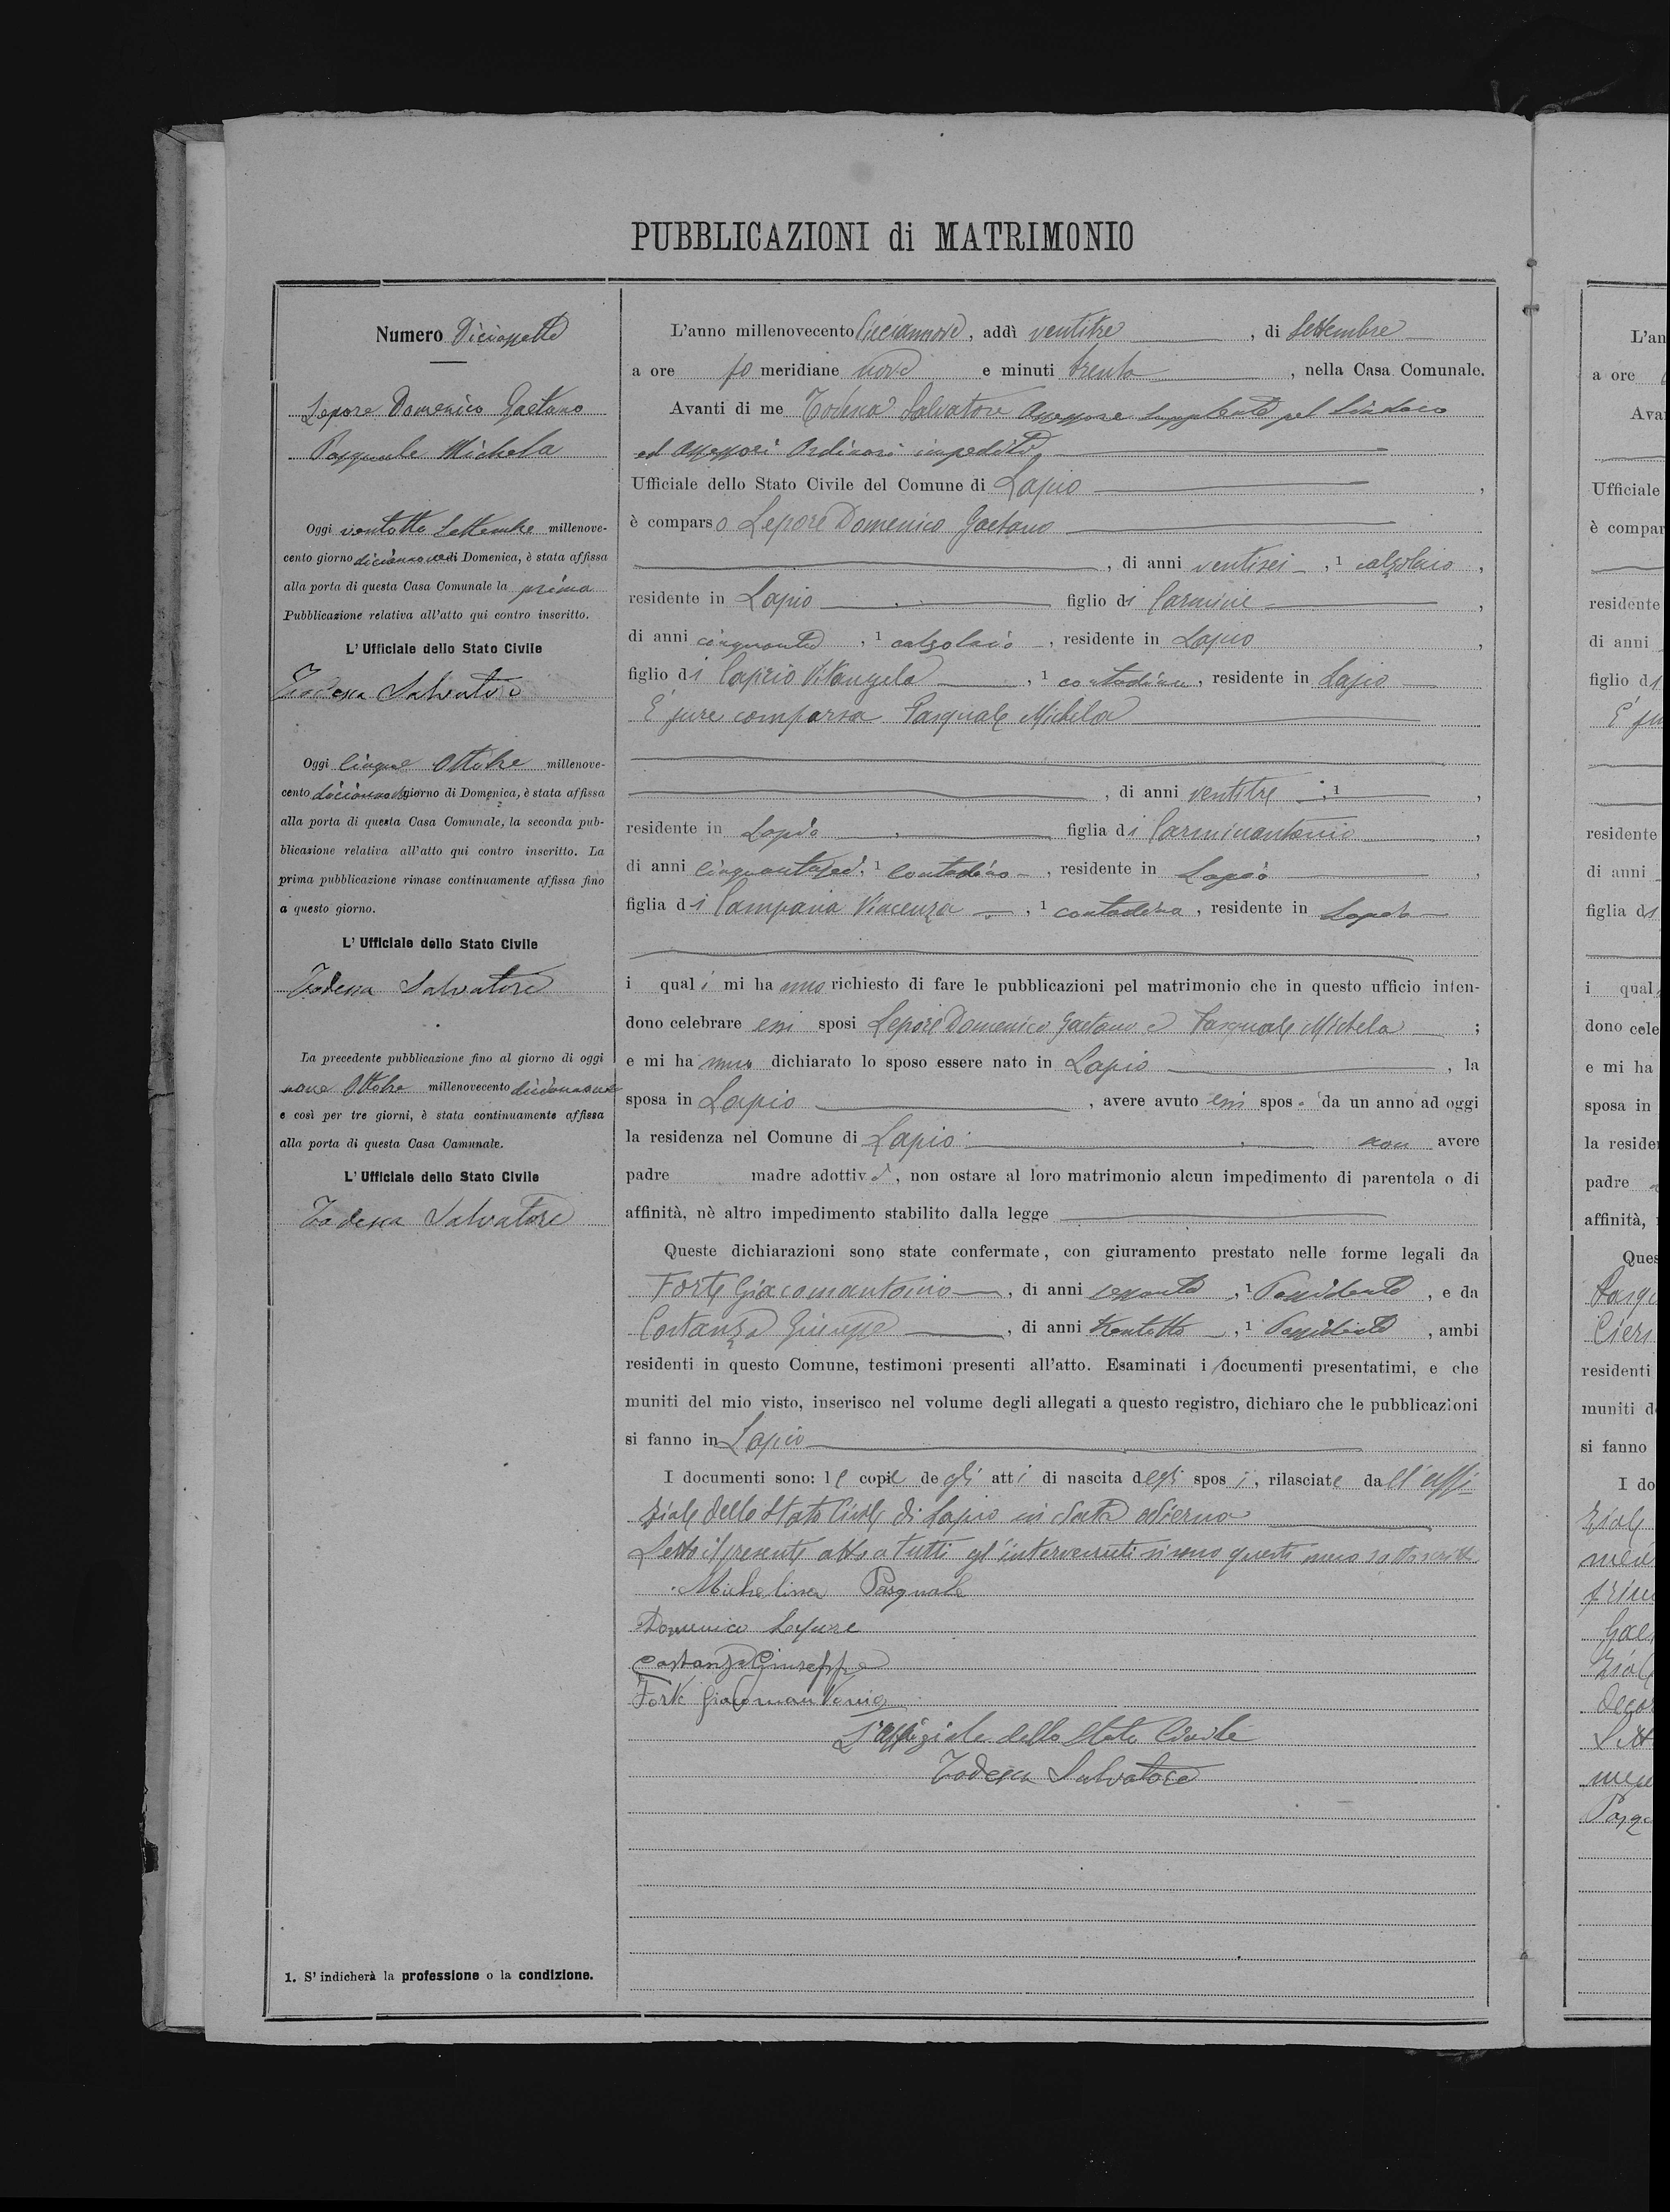 PUBBLICAZIONI di MATRIMONIO
Numero Diciassette
Lepore Domenico Gaetano
Pasquale Michela
Oggi ventotto Settembre millenove-
cento giorno diciannove di Domenica, è stata affissa
alla porta di questa Casa Comunale la prima
Pubblicazione relativa all'atto qui contro inscritto.
L'Ufficiale dello Stato Civile
Todesca Salvatore
Oggi Cinque Ottobre millenove-
cento diciannove giorno di Domenica, è stata affissa
alla porta di questa Casa Comunale, la seconda pub-
blicazione relativa all'atto qui contro inscritto. La
prima pubblicazione rimase continuamente affissa fino
a questo giorno.
L'Ufficiale dello Stato Civile
Todesca Salvatore
La precedente pubblicazione fino al giorno di oggi
nove Ottobre millenovecento diciannove
e così per tre giorni, è stata continuamente affissa
alla porta di questa Casa Camunale.
L'Ufficiale dello Stato Civile
Todesca Salvatore
1. S'indicherà la professione o la condizione.
L'anno millenovecento diciannove, addì ventitre, di Settembre
a ore meridiane nove e minuti trenta, nella Casa Comunale.
Avanti di me Todesca Salvatore Assessore Supplente pel Sindaco
ed Assessori Ordinari impediti,
Ufficiale dello Stato Civile del Comune di Lapio,
è comparso Lepore Domenico Gaetano
, di anni ventisei, 1 calzolaio,
residente in Lapio figlio di Carmine,
di anni cinquanta, 1 calzolaio, residente in Lapio,
figlio di Caprio Vitangela, 1 contadina, residente in Lapio
È pure comparsa Pasquale Michela
, di anni ventitre, 1,
residente in Lapio figlia di Carminantonio,
di anni cinquantasei, 1 contadino, residente in Lapio,
figlia di Campana Vincenza, 1 contadina, residente in Lapio
i quali mi hanno richiesto di fare le pubblicazioni pel matrimonio che in questo ufficio inten-
dono celebrare essi sposi Lepore Domenico Gaetano e Pasquale Michela;
e mi hanno dichiarato lo sposo essere nato in Lapio, la
sposa in Lapio, avere avuto essi spos da un anno ad oggi
la residenza nel Comune di Lapio non avere
padre madre adottivi, non ostare al loro matrimonio alcun impedimento di parentela o di
affinità, nè altro impedimento stabilito dalla legge
Queste dichiarazioni sono state confermate, con giuramento prestato nelle forme legali da
Forte Giacomantonio, di anni sessanta, 1 Possidente, e da
Costanza Giuseppe, di anni trentotto, 1 Possidente, ambi
residenti in questo Comune, testimoni presenti all'atto. Esaminati i documenti presentatimi, e che
muniti del mio visto, inserisco nel volume degli allegati a questo registro, dichiaro che le pubblicazioni
si fanno in Lapio
I documenti sono: le copie degli atti di nascita degli sposi, rilasciate dall'uffi-
ziale dello Stato Civile di Lapio in data odierna
Letto il presente atto a tutti gl'intervenuti si sono questi meco sottoscritti
Michelina Pasquale
Domenico Lepore
Costanza Giuseppe
Forte Giacomantonio
L'uffiziale dello Stato Civile
Todesca Salvatore
L'an
a ore
Ava
Ufficiale
è compar
residente
di anni
figlio di
È pu
residente
di anni
figlia di
i qual
dono cele
e mi ha
sposa in
la reside
padre
affinità,
Ques
residenti
muniti d
si fanno
I do
ziale